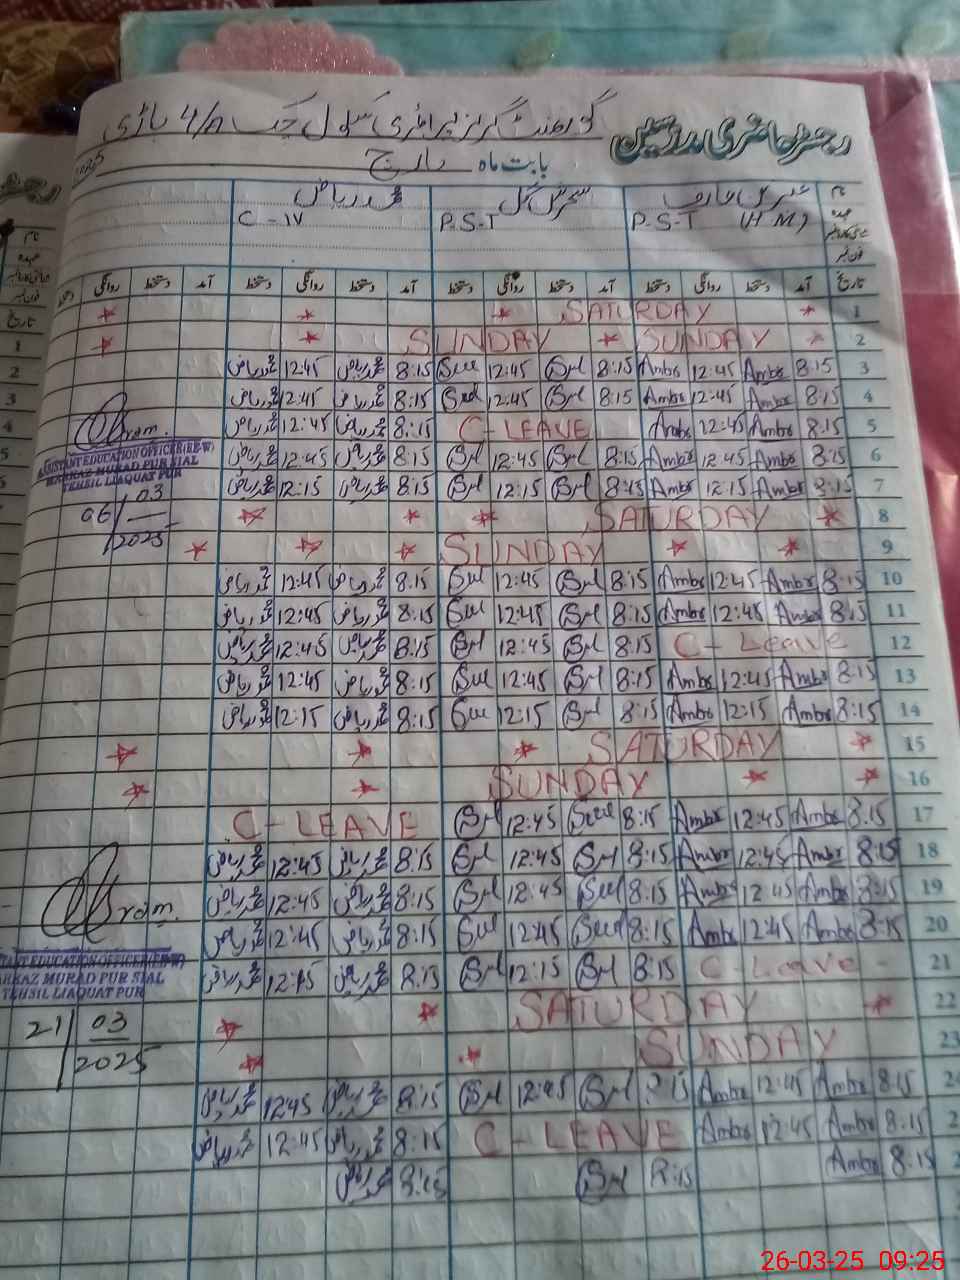 گورنمنٹ گرلز پرائمری سکول چک 4/A
رجسٹر حاضری مدرسین
بابت ماہ مارچ 2025
نام عنبرین عارف سحرش گل محمد ریاض
عہدہ P.S.T (H.M) P.S.T C-IV
تاریخ آمد دستخط روانگی دستخط آمد دستخط روانگی دستخط آمد دستخط روانگی دستخط آمد دستخط روانگی
1 SATURDAY
2 SUNDAY SUNDAY
3 8:15 Ambr 12:45 Ambr 8:15 12:45 8:15 محمد ریاض 12:45 محمد ریاض
4 8:15 Ambr 12:45 Ambr 8:15 12:45 8:15 محمد ریاض 12:45 محمد ریاض
5 8:15 Ambr 12:45 Ambr C-LEAVE 8:15 محمد ریاض 12:45 محمد ریاض
6 8:15 Ambr 12:45 Ambr 8:15 12:45 8:15 محمد ریاض 12:45 محمد ریاض
7 8:15 Ambr 12:15 Ambr 8:15 12:15 8:15 محمد ریاض 12:15 محمد ریاض
ASSISTANT EDUCATION OFFICER (EE-W)
MARKAZ MURAD PUR SIAL
TEHSIL LIAQUAT PUR
06/03/2025
8 SATURDAY
9 SUNDAY
10 8:15 Ambr 12:45 Ambr 8:15 12:45 8:15 محمد ریاض 12:45 محمد ریاض
11 8:15 Ambr 12:45 Ambr 8:15 12:45 8:15 محمد ریاض 12:45 محمد ریاض
12 C-Leave 8:15 12:45 8:15 محمد ریاض 12:45 محمد ریاض
13 8:15 Ambr 12:45 Ambr 8:15 12:45 8:15 محمد ریاض 12:45 محمد ریاض
14 8:15 Ambr 12:15 Ambr 8:15 12:15 8:15 محمد ریاض 12:15 محمد ریاض
15 SATURDAY
16 SUNDAY
17 8:15 Ambr 12:45 Ambr 8:15 12:45 C-LEAVE
18 8:15 Ambr 12:45 Ambr 8:15 12:45 8:15 محمد ریاض 12:45 محمد ریاض
19 8:15 Ambr 12:45 Ambr 8:15 12:45 8:15 محمد ریاض 12:45 محمد ریاض
20 8:15 Ambr 12:45 Ambr 8:15 12:45 8:15 محمد ریاض 12:45 محمد ریاض
21 C-Leave 8:15 12:15 8:15 محمد ریاض 12:15 محمد ریاض
EDUCATION OFFICER (EE-W)
MARKAZ MURAD PUR SIAL
TEHSIL LIAQUAT PUR
21/03/2025
22 SATURDAY
23 SUNDAY
8:15 Ambr 12:45 Ambr 8:15 12:45 8:15 محمد ریاض 12:45 محمد ریاض
8:15 Ambr 12:45 Ambr C-LEAVE 8:15 محمد ریاض 12:45 محمد ریاض
8:15 Ambr 8:15 8:15 محمد ریاض
26-03-25 09:25